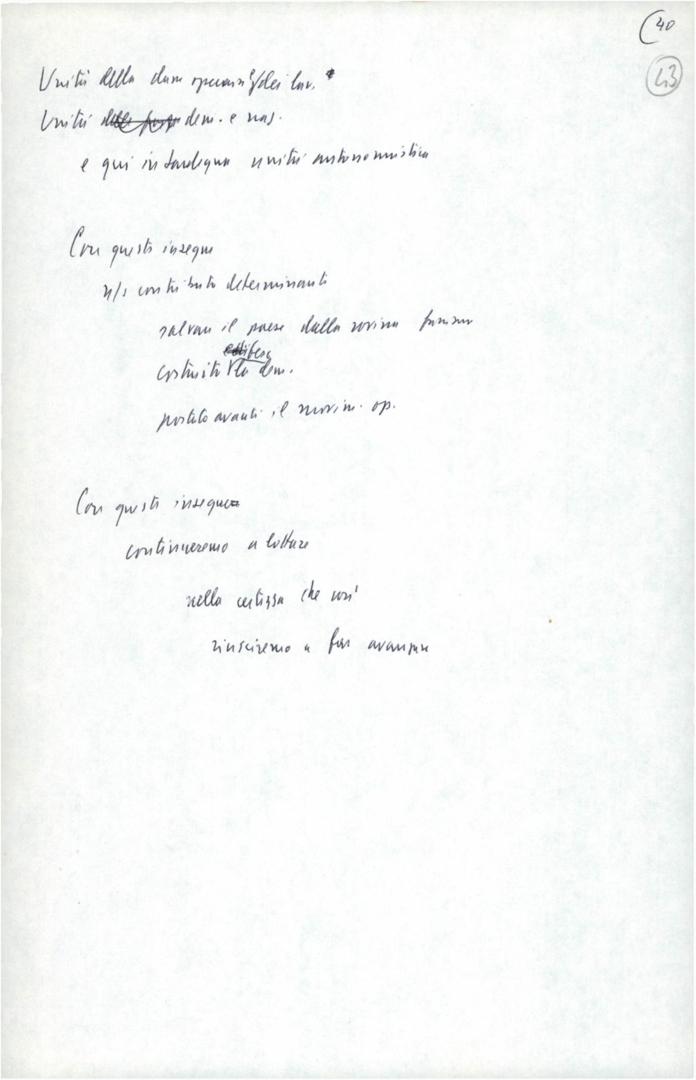 (40
43
Unità della classe operaia e dei lav.
Unità delle forze dem. e naz.
e qui in Sardegna unità autonomistica
Con queste insegne
n/s contributo determinanti
salvare il paese dalla rovina
costruito difesa la dem.
portato avanti il movim. op.
Con queste insegne
continueremo a lottare
nella certezza che così
riusciremo a far avanzare